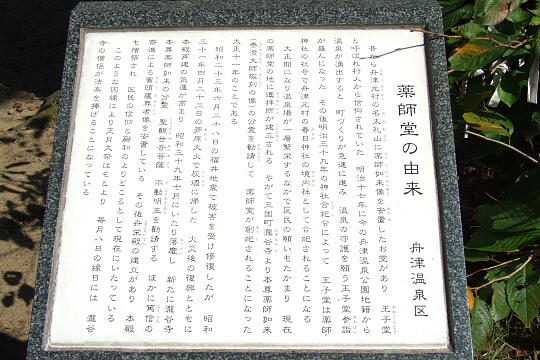 薬師堂の由来
舟津温泉区
昔から舟津元村の名丈礼山に薬師如来像を安置したお堂があり 王子堂
と呼ばれ村人から信仰されていた 明治十七年に今の舟津温泉公園地籍から
温泉が湧出すると 町づくりが急速に進み 温泉の守護を願う王子堂参詣
が盛んになった その後明治三十九年の神社合祀令によって 王子堂は薬師
神社の社号で舟津元村の春日神社の境内社として合祀されることになる
大正期になり温泉場が一層繁栄するなかで区民の願いもたかまり 現在
の薬師堂の地に遥拝所が建立される やがて三国町瀧谷寺より本尊薬師如来
(泰澄大師坂刻の像)の分霊を勧請して 薬師堂が創祀されることになった
大正十一年のことである
昭和二十三年六月二十八日の福井地震で被害を受け修復したが 昭和
三十一年四月二十三日の芦原大火で灰燼に帰した 火災後の復興とともに
本殿再建の気運が高まり 昭和三十九年七月にいたり落慶し 新たに瀧谷寺
本尊薬師如来の分霊 聖観世音菩薩 不動明王を勧請する ほかに篤信の
寄進による賓頭廬尊者像を安置している その後舟栄殿の建立があり 本殿
も増築され 区民の信仰と融和のよりどころとして現在にいたっている
このような因縁により正月大祭はもとより 毎月八日の縁日には 瀧谷
寺の僧侶が法楽を捧げることになっている